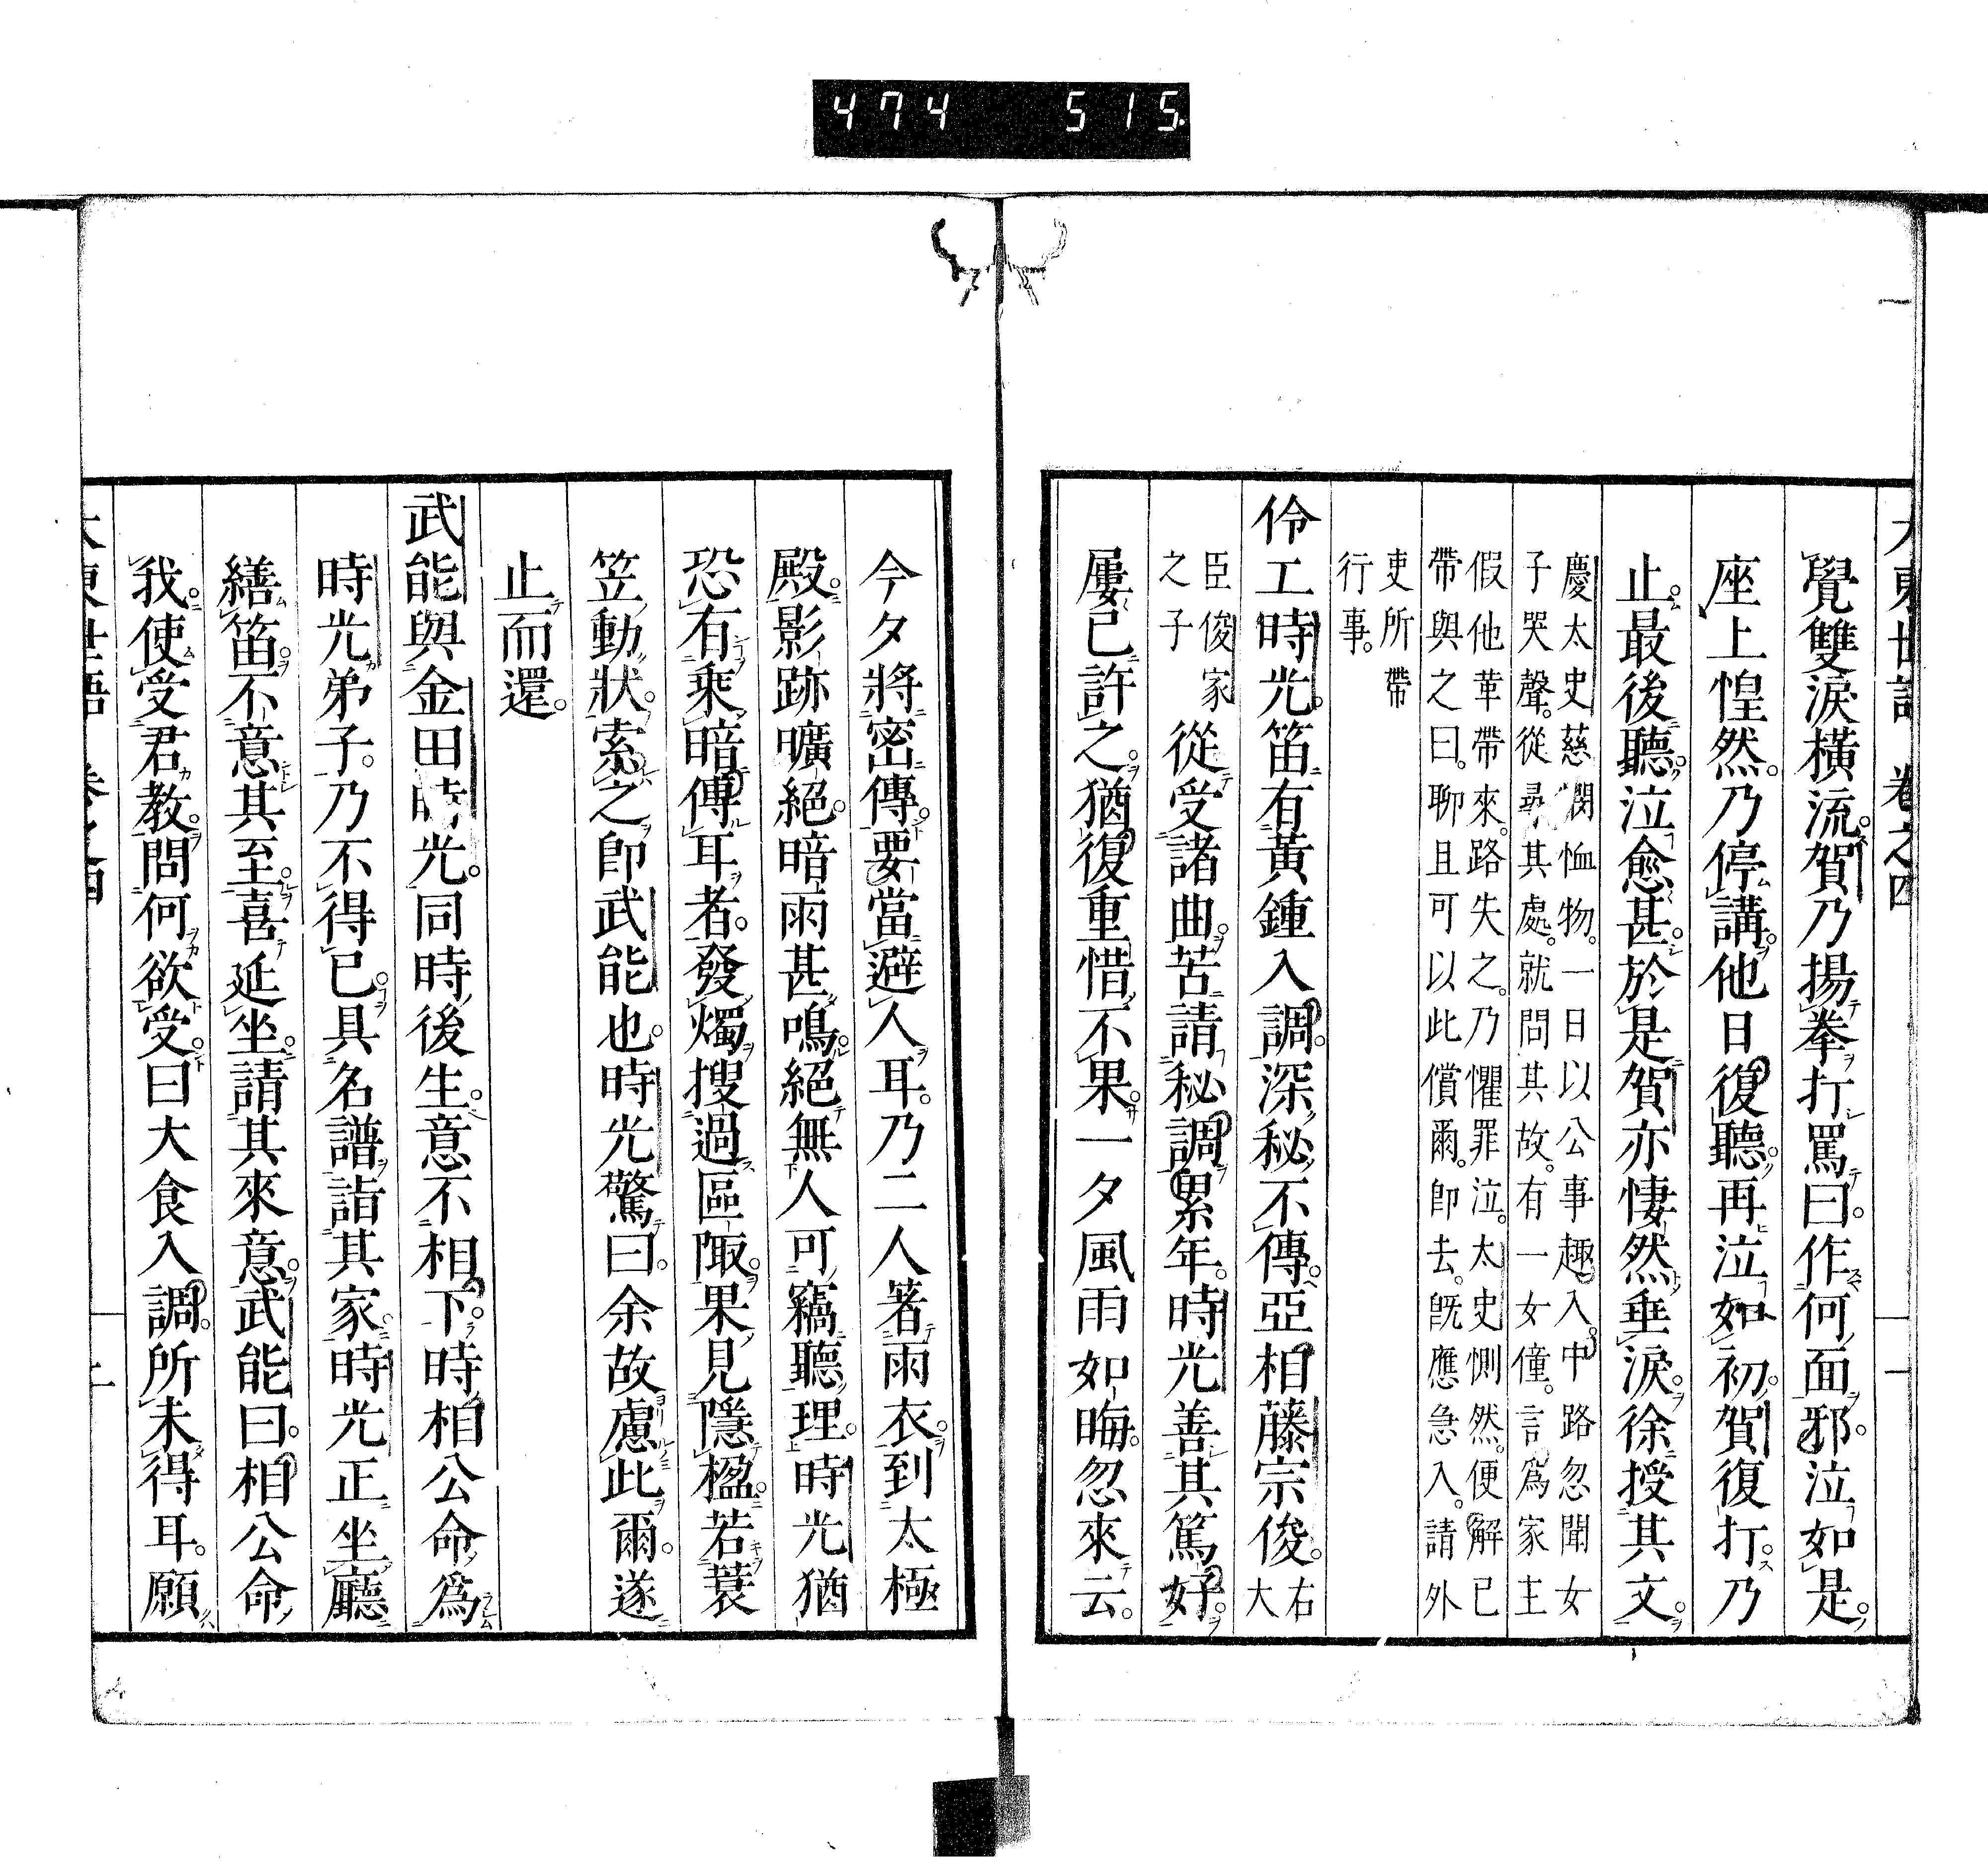 474 515.
大東世語 卷之四
覺雙淚橫流賀乃揚拳打罵曰作何面邪泣如是
座上惶然乃停講他日復聽再泣如初賀復打乃
止最後聽泣愈甚於是賀亦悽然垂淚徐授其文
慶太史慈憫恤物一日以公事趣入中路忽聞女
子哭聲從尋其處就問其故有一女僮言爲家主
假他革帶來路失之乃懼罪泣太史惻然便解已
帶與之曰聊且可以此償爾卽去旣應急入請外
吏所帶
行事
伶工時光笛有黃鍾入調深秘不傳亞相藤宗俊右大
臣俊家
之子從受諸曲苦請秘調累年時光善其篤好
屢已許之猶復重惜不果一夕風雨如晦忽來云
今夕將密傳要當避人耳乃二人著雨衣到太極
殿影跡曠絕暗雨甚鳴絕無人可竊聽理時光猶
恐有乘暗傳耳者發燭搜過區陬果見隱楹若蓑
笠動狀索之卽武能也時光驚曰余故慮此爾遂
止而還
武能與金田時光同時後生意不相下時相公命爲
時光弟子乃不得已具名譜詣其家時光正坐廳
繕笛不意其至喜延坐請其來意武能曰相公命
我使受君教問何欲受曰大食入調所未得耳願
大東世語 卷之四